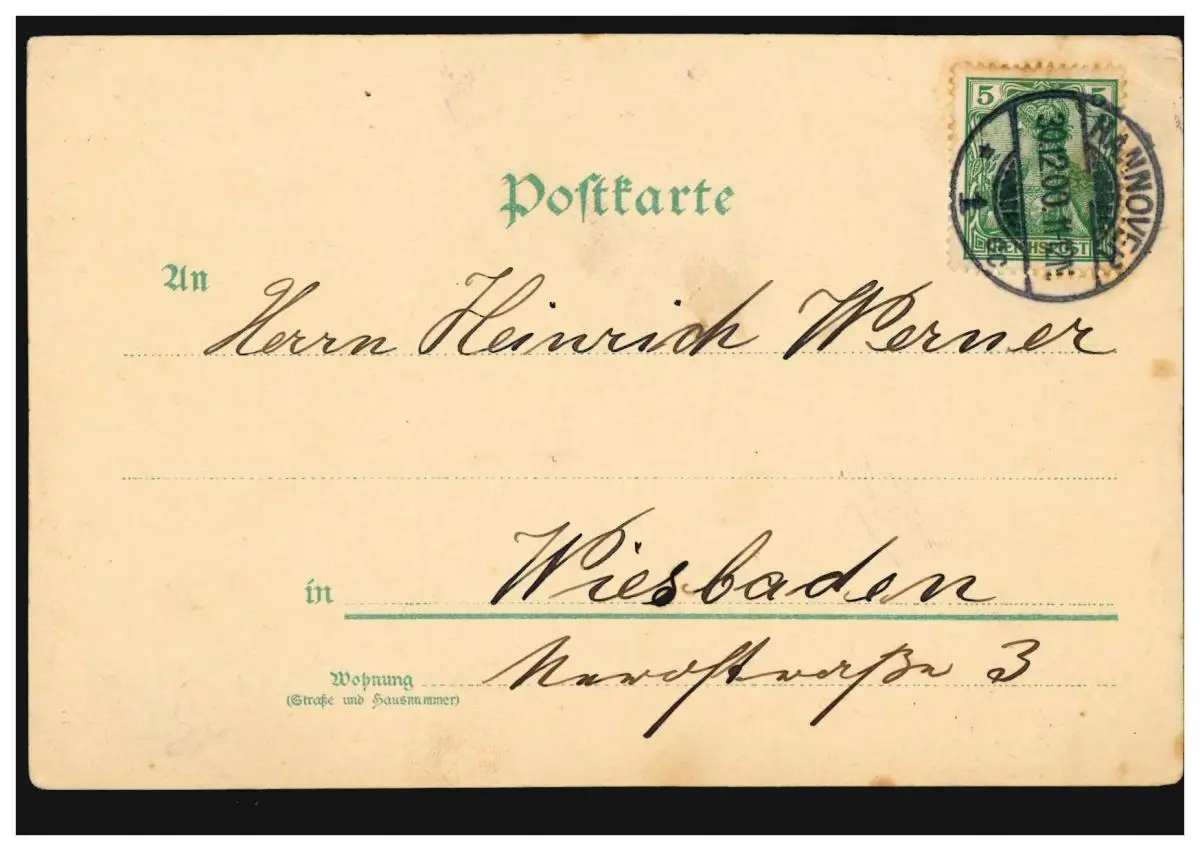 5 5
REICHSPOST
HANNOVER
30.12.00. 11-12N.
* 1 c
Postkarte
An
Herrn Heinrich Werner
in Wiesbaden
Wohnung 3
(Straße und Hausnummer)